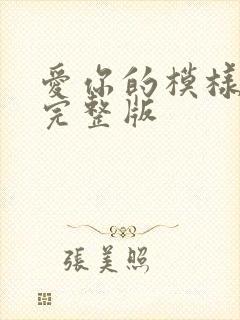 愛你的模樣
完整版
張美照